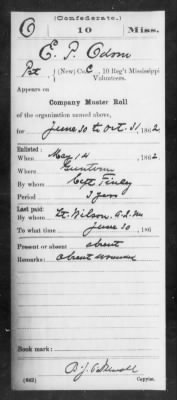 (Confederate.)
O 10 Miss.
E. P. Odom
Pvt (New) Co. C, 10 Reg't Mississippi
Volunteers.
Appears on
Company Muster Roll
of the organization named above,
for June 30 to Oct. 31, 1862
Enlisted:
When May 14, 1862
Where
By whom Capt Finley
Period 3 years
Last paid:
By whom Lt. Wilson, A.Q.M.
To what time June 30, 186
Present or absent absent
Remarks: absent wounded
Book mark:
(642) Copyist.